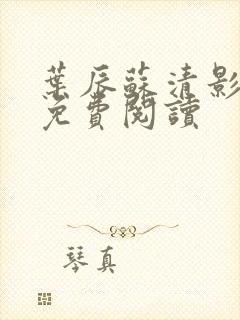 葉辰蘇清影
免費閱讀
琴真